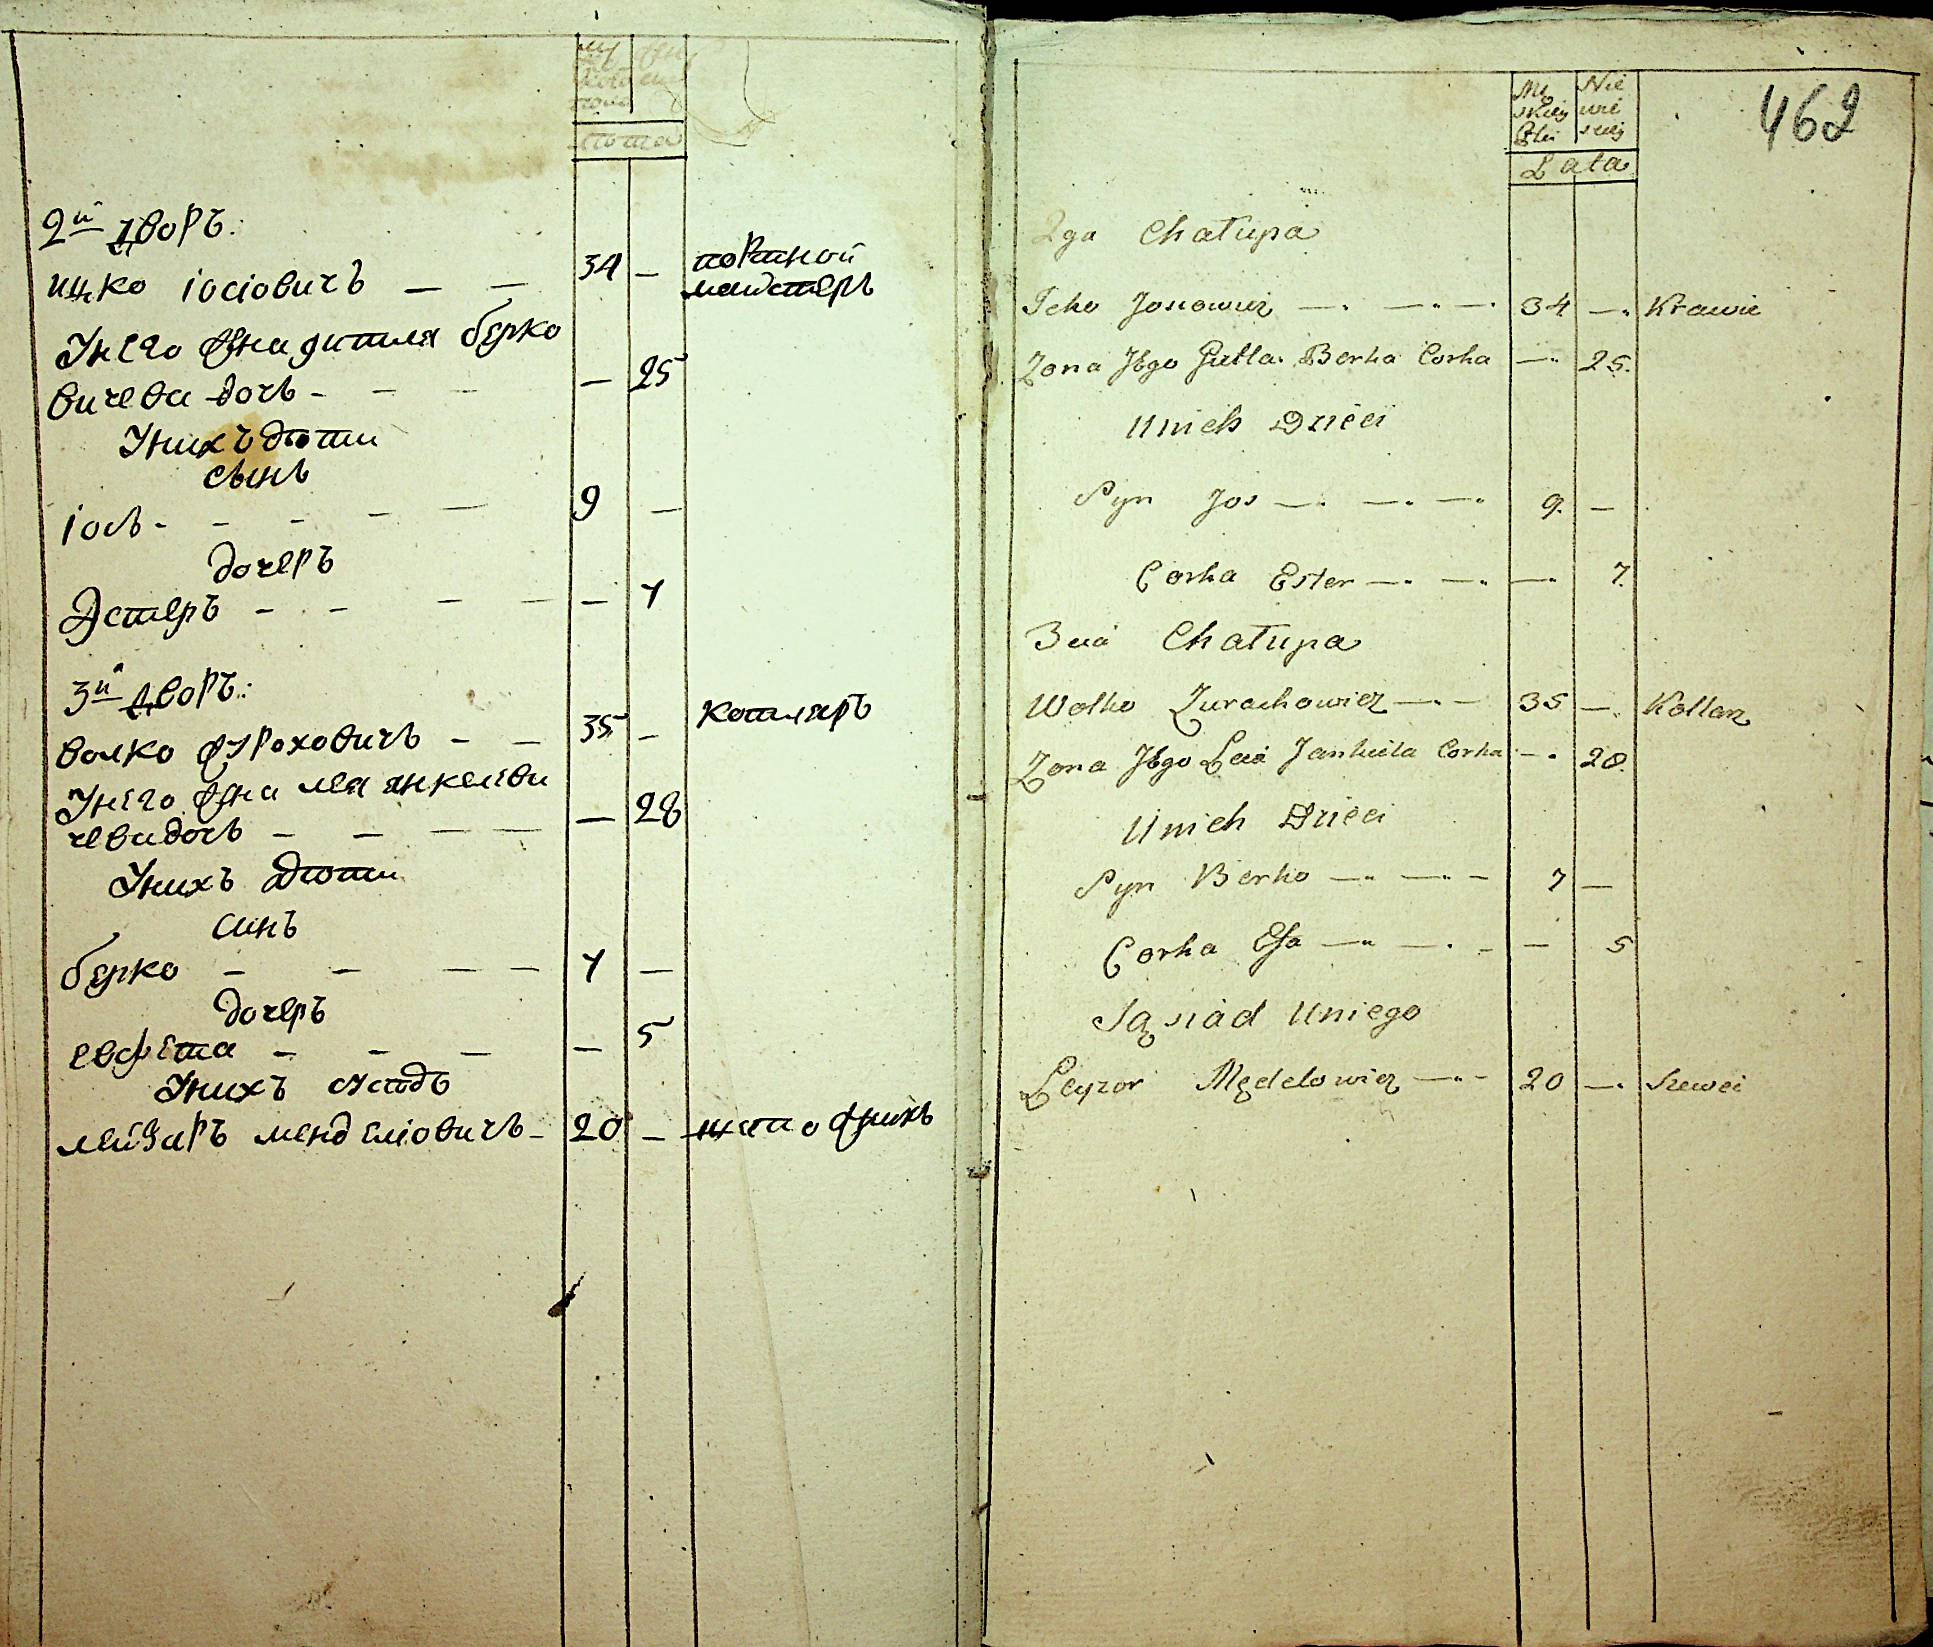 лѣта
2й дворъ:
ицко іосіовичъ — — 34 — портной
майстеръ
У него жена гитля берко
вичева дочь - — — — 25
У нихъ дѣти
сынъ
іось - - - — — 9 —
дочеръ
Эстеръ - - — — — 7
3й дворъ:
волко зурховичъ - — 35 — котляръ
У него жена лея янкелеви
чева дочь — — — — — 28
У нихъ дѣти
синъ
берко — — — — 7 —
дочеръ
евфета — — — — 5
У нихъ сусѣдъ
лейзаръ менделіовичъ — 20 — шапожникъ
462
Mę Nie
skiey wie
Płci sciey
Lata
2ga Chałupa
Icko Josiowicz — — — 34 — Krawie
Zona Jego Gutla Berka Corka — 25.
U nich Dzieci
Syn Jos — — — 9. —
Corka Ester — — — 7.
3cia Chałupa
Wolko Zurachowicz — — 35 — Kotlarz
Zona Jego Leia Jankiela Corka — 28.
U nich Dzieci
Syn Berko — — — 7 —
Corka Efa — — - — 5
Sąsiad U niego
Leyzor Mędelowicz — - 20 — Szewci